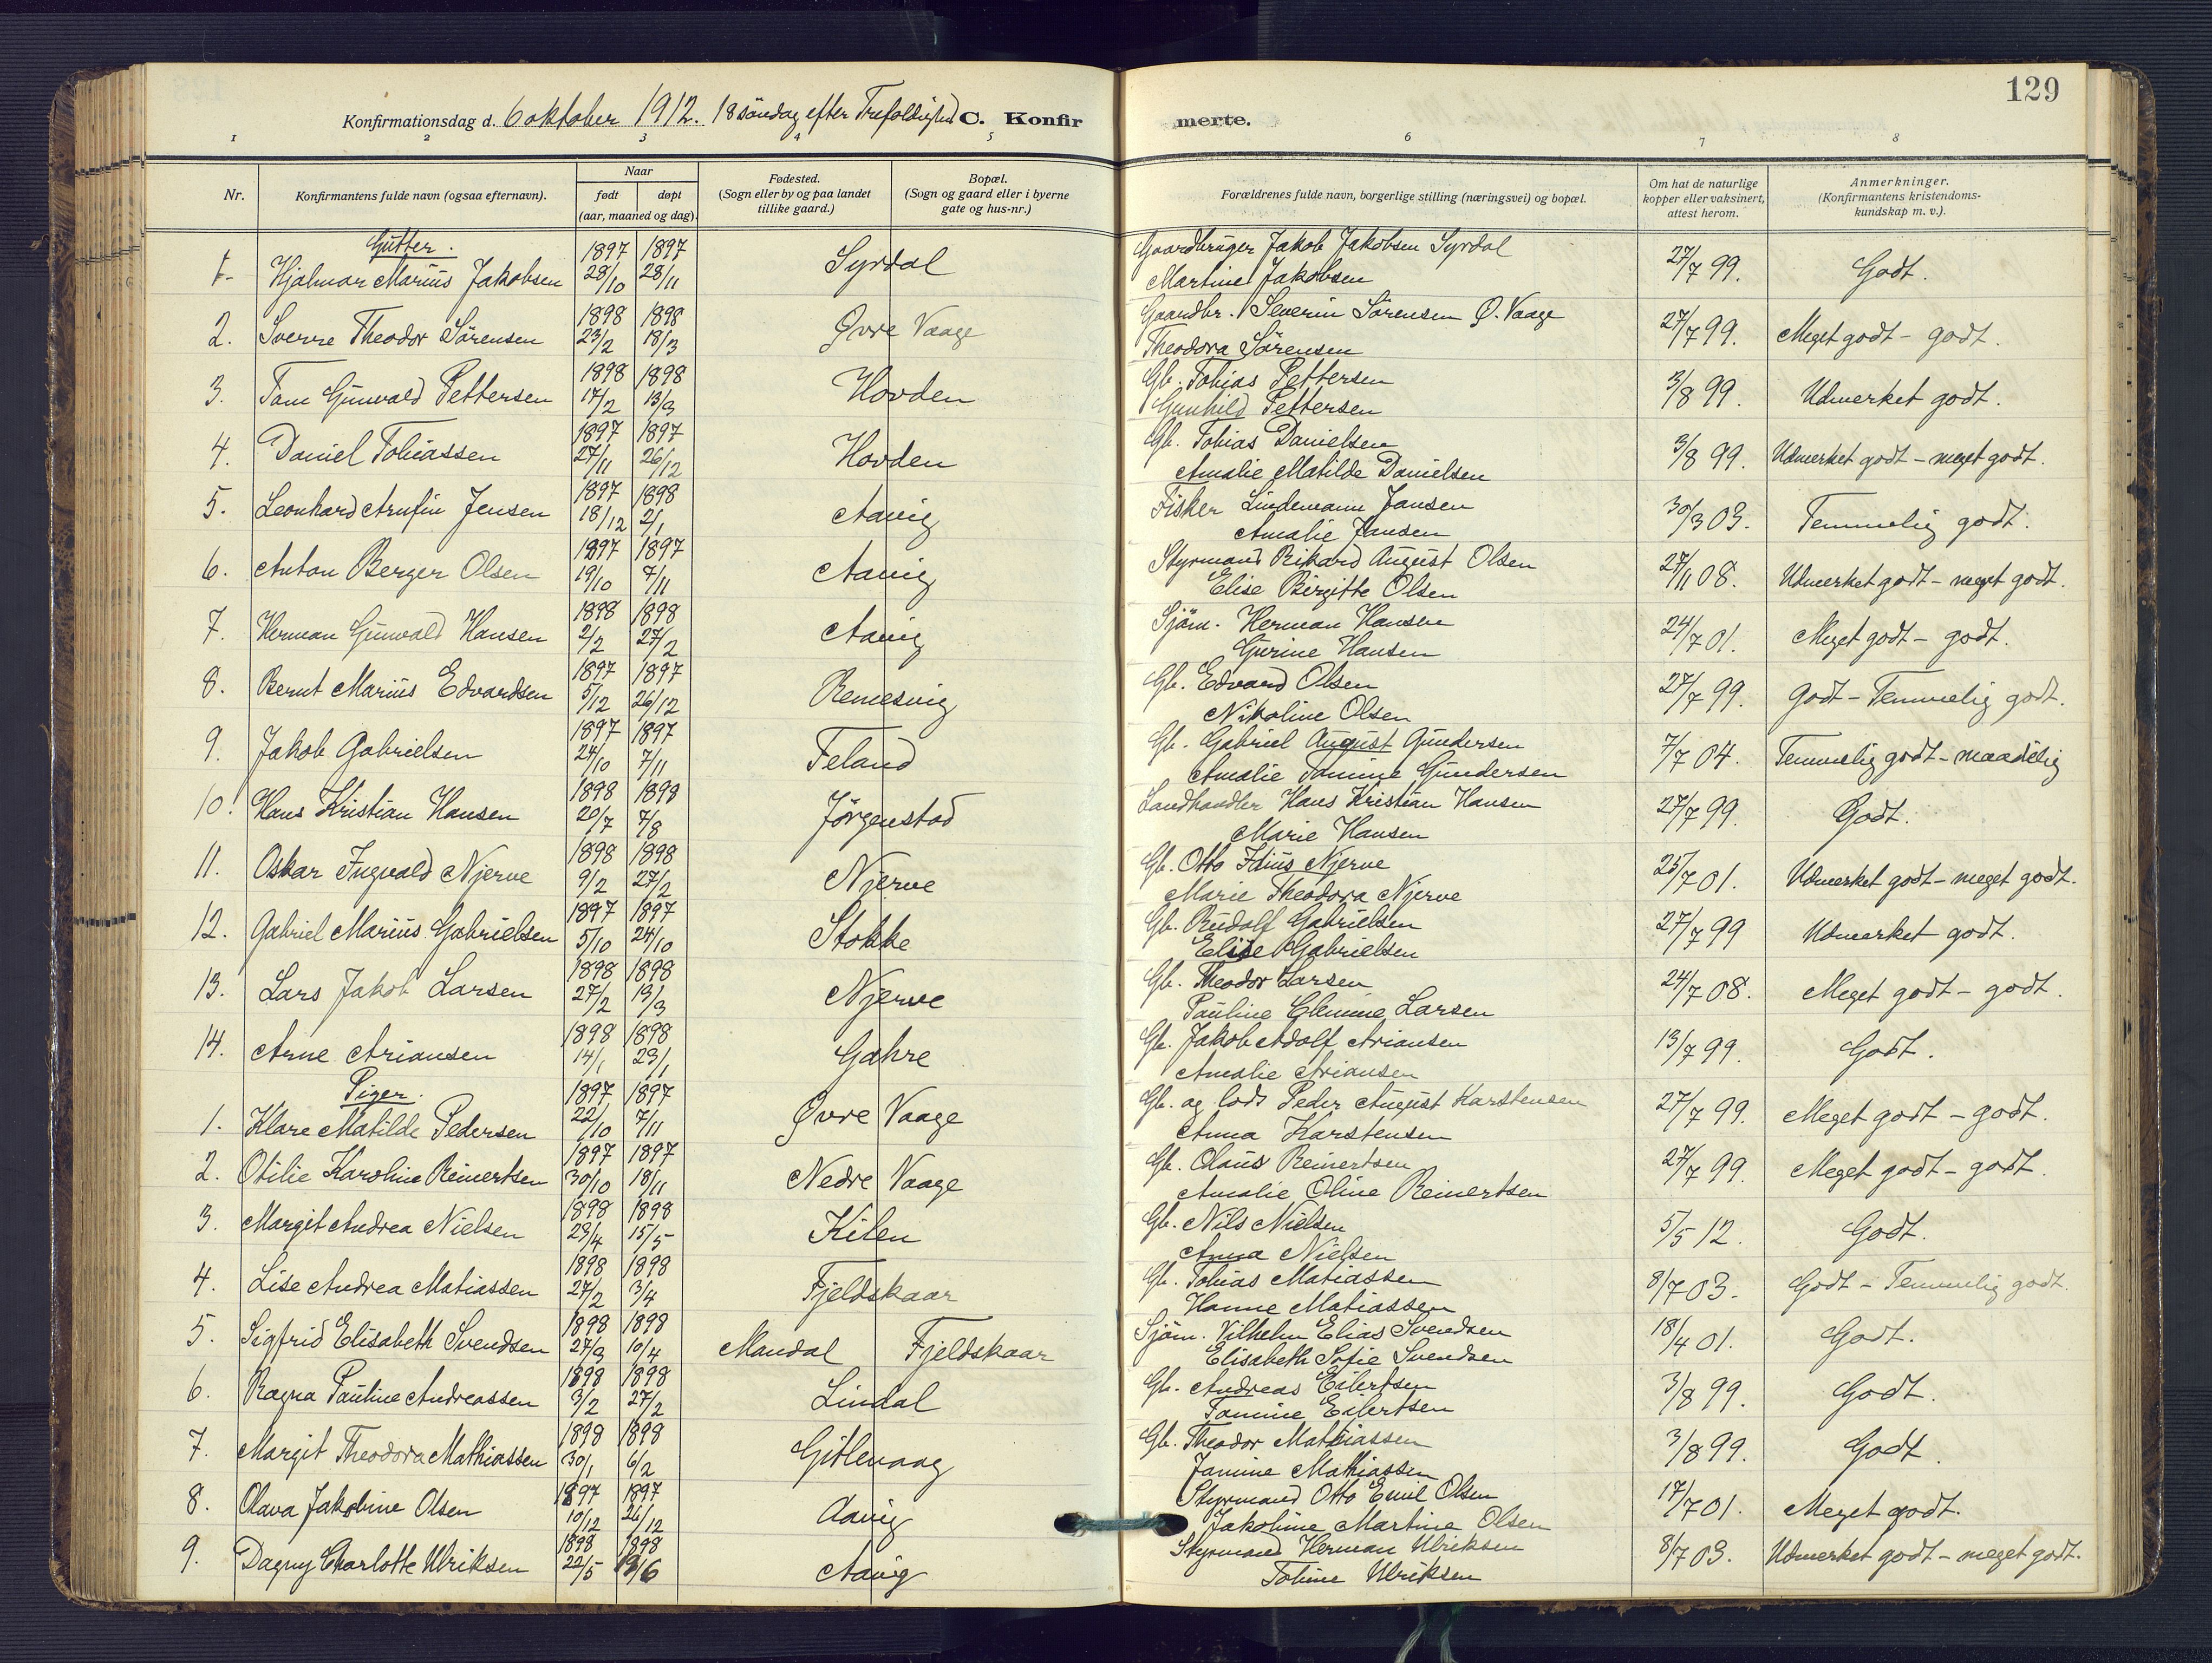 129
Konfirmationsdag d. 6 oktober 1912. 18 søndag efter Trefoldighed C. Konfir merte.
1 2 3 4 5 6 7 8
Nr. Konfirmantens fulde navn (ogsaa efternavn). Naar født døpt (aar, maaned og dag). Fødested. (Sogn eller by og paa landet tillike gaard.) Bopæl. (Sogn og gaard eller i byerne gate og hus-nr.) Forældrenes fulde navn, borgerlige stilling (næringsvei) og bopæl. Om hat de naturlige kopper eller vaksinert, attest herom. Anmerkninger. (Konfirmantens kristendoms-kundskap m. v.).
Gutter.
1. Hjalmar Marius Jakobsen 1897 28/10 1897 28/11 Syrdal Gaardbruger Jakob Jakobsen Syrdal Martine Jakobsen 27/7 99. Godt.
2. Sverre Theodor Sørensen 1898 23/2 1898 18/3 Øvre Vaage Gaardbr. Severin Sørensen Ø. Vaage Theodora Sørensen 27/7 99. Meget godt - godt.
3. Tom Gunvald Pettersen 1898 17/2 1898 13/3 Hovden Gb. Tobias Pettersen Gunhild Pettersen 3/8 99. Udmerket godt.
4. Daniel Tobiassen 1897 27/11 1897 26/12 Hovden Gb. Tobias Danielsen Amalie Matilde Danielsen 3/8 99. Udmerket godt - meget godt.
5. Leonhard Arnfin Jensen 1897 18/12 1898 2/1 Aavig Fisker Lindemann Jansen Amalie Jansen 30/3 03. Temmelig godt.
6. Anton Berger Olsen 1897 19/10 1897 7/11 Aavig Styrmand Rikard August Olsen Elise Birgitte Olsen 27/11 08. Udmerket godt - meget godt.
7. Herman Gunvald Hansen 1898 2/2 1898 27/2 Aavig Sjøm. Herman Hansen Gurine Hansen 24/7 01. Meget godt - godt.
8. Bernt Marius Edvardsen 1897 5/12 1897 26/12 Remesvig Gb. Edvard Olsen Nikoline Olsen 27/7 99. Godt - Temmelig godt.
9. Jakob Gabrielsen 1897 24/10 1897 7/11 Feland Gb. Gabriel August Gundersen Amalie Tomine Gundersen 7/7 04. Temmelig godt - maadelig
10. Hans Kristian Hansen 1898 20/7 1898 7/8 Jørgenstad Landhandler Hans Kristian Hansen Marie Hansen 27/7 99. Godt.
11. Oskar Ingvald Njerve 1898 9/2 1898 27/2 Njerve Gb. Otto Idius Njerve Marie Theodora Njerve 25/7 01. Udmerket godt - meget godt.
12. Gabriel Marius Gabrielsen 1897 5/10 1897 24/10 Stokke Gb. Rudolf Gabrielsen Elise Gabrielsen 27/7 99 Udmerket godt.
13. Lars Jakob Larsen 1898 27/2 1898 13/3 Njerve Gb. Theodor Larsen Pauline Clemine Larsen 24/7 08. Meget godt - godt.
14. Arne Ariansen 1898 14/1 1898 23/1 Gahre Gb. Jakob Adolf Ariansen Amalie Ariansen 13/7 99. Godt.
Piger.
1. Klare Matilde Pedersen 1897 22/10 1897 7/11 Øvre Vaage Gb. og lods Peder August Karstensen Anna Karstensen 27/7 99. Meget godt - godt.
2. Otilie Karoline Reinertsen 1897 30/10 1897 18/11 Nedre Vaage Gb. Olaus Reinertsen Amalie Oline Reinertsen 27/7 99. Meget godt - godt.
3. Margit Andrea Nielsen 1898 23/4 1898 15/5 Kilen Gb. Nils Nielsen Anna Nielsen 5/5 12. Godt.
4. Lise Andrea Matiassen 1898 27/2 1898 3/4 Fjeldskaar Gb. Tobias Matiassen Hanne Matiassen 8/7 03. Godt - Temmelig godt.
5. Sigfrid Elisabeth Svendsen 1898 27/3 1898 10/4 Mandal Fjeldskaar Sjøm. Vilhelm Elias Svendsen Elisabeth Sofie Svendsen 18/4 01. Godt.
6. Ragna Pauline Andreassen 1898 3/2 1898 27/2 Lindal Gb. Andreas Eilertsen Tomine Eilertsen 3/8 99. Godt.
7. Margit Theodora Mathiassen 1898 30/1 1898 6/2 Gitlevaag Gb. Theodor Mathiassen Janine Mathiassen 3/8 99. Godt.
8. Olava Jakobine Olsen 1897 10/12 1897 26/12 Aavig Styrmand Otto Emil Olsen Jakobine Martine Olsen 17/7 01. Meget godt.
9. Dagny Charlotte Ulriksen 1898 22/5 1898 19/6 Aavig Styrmand Herman Ulriksen Tobine Ulriksen 8/7 03. Udmerket godt - meget godt.